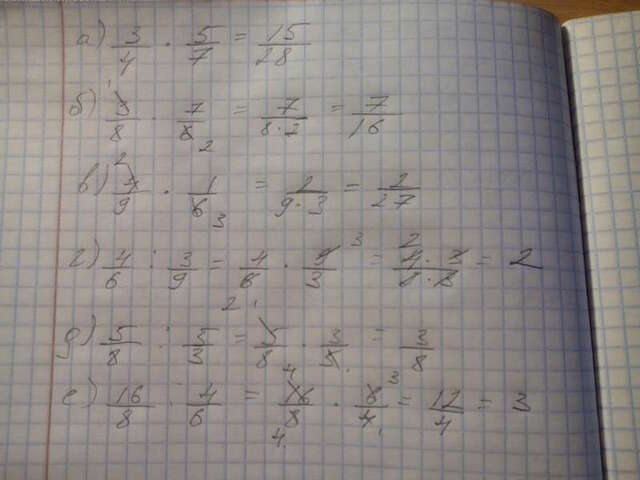 а) 3/4 · 5/7 = 15/28
б) 3/8 · 7/6 = 7/(8·2) = 7/16
в) 4/9 · 1/6 = 2/(9·3) = 2/27
г) 4/6 : 3/9 = 4/6 · 9/3 = = 2
д) 5/8 : 5/3 = 5/8 · 3/5 = 3/8
е) 16/8 : 4/6 = 16/8 · 6/4 = 12/4 = 3